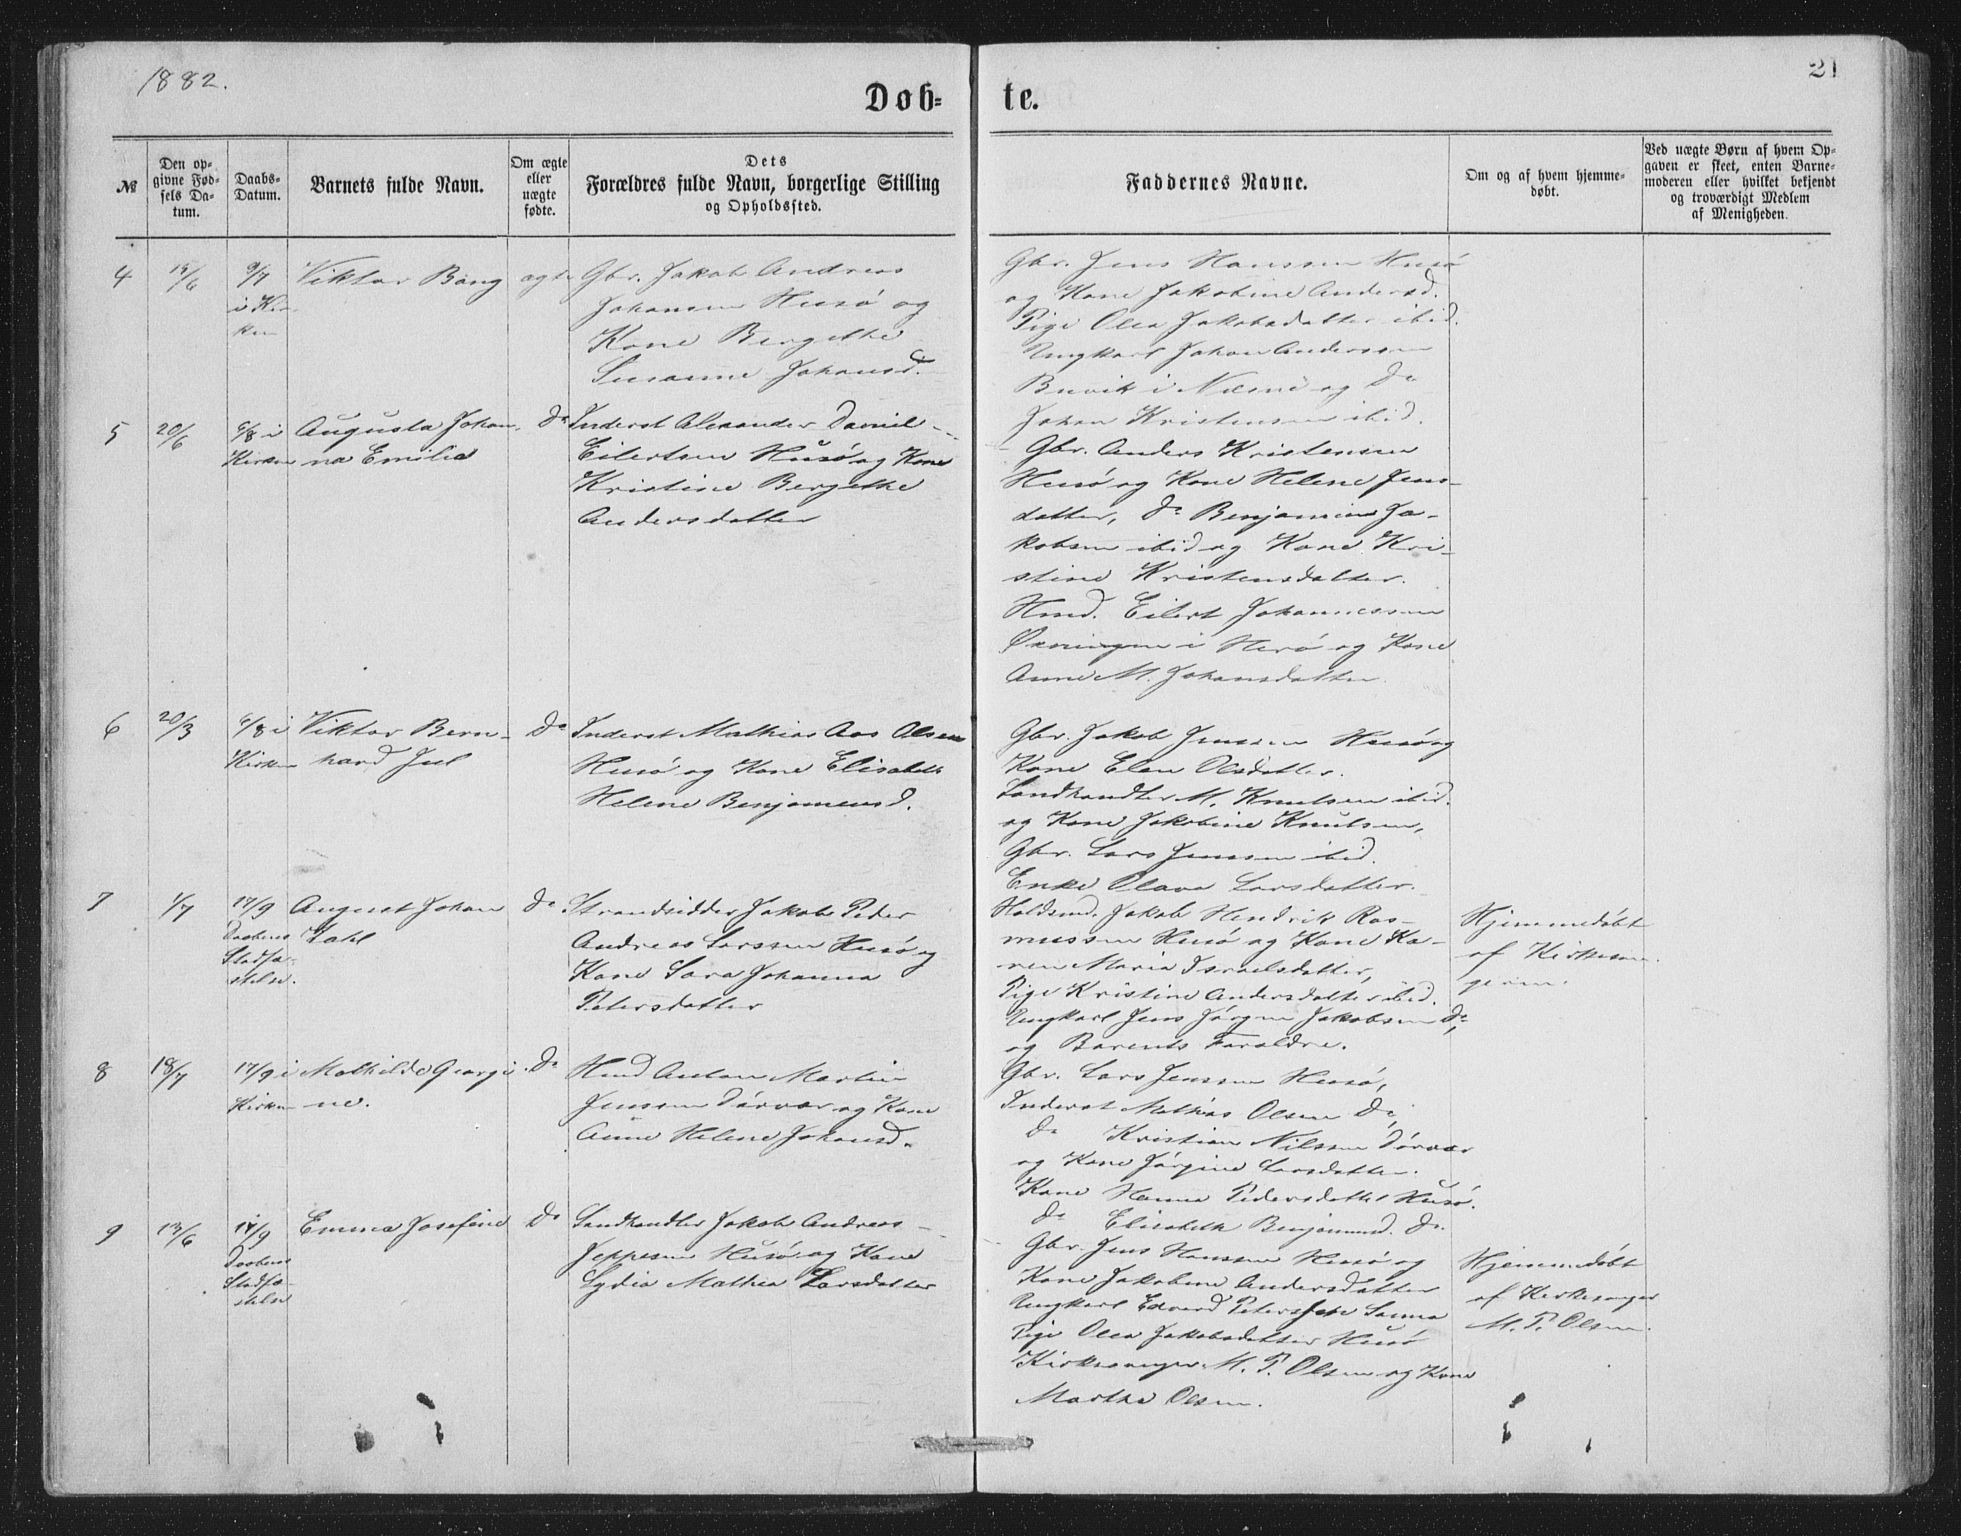 1882.
21
Døb- te.
№
Den op-
givne Fød-
sels Da-
tum.
Daabs-
Datum.
Barnets fulde Navn.
Om ægte
eller
uægte
fødte.
Dets
Forældres fulde Navn, borgerlige Stilling
og Opholdssted.
Faddernes Navne.
Om og af hvem hjemme-
døbt.
Ved uægte Børn af hvem Op-
gaven er skeet, enten Barne-
moderen eller hvilket bekjendt
og troværdigt Medlem
af Menigheden.
4
9/7
i Kir-
ken
Viktor Bang
ægte
Gbr. Jakob Andreas
Johansen Husø og
Kone Bergethe
Susanne Johansd.
Gbr. Jens Hanssen Husø
og Kone Jakobine Andersd.
Pige Olea Jakobsdatter ibid.
Ungkarl Johan Anderssen
Buvik i Næsne og Do
Johan Kristensen ibid.
5
20/6
6/8 i
Kirken
Augusta Johan-
na Emilie
Do
Inderst Alexander Daniel
Eilertsen Husø og Kone
Kristine Bergethe
Andersdatter
Gbr. Anders Kristensen
Husø og Kone Helene Jens-
datter, Do Benjamin Ja-
kobsen ibid og Kone Kri-
stine Kristensdatter.
Hmd. Eilert Johannessen
i Herø og Kone
Anne M. Johansdatter
6
20/3
6/8 i
Kirken
Viktor Bern-
hard Jul
Do
Inderst Mathias Aas Olsen
Husø og Kone Elisabeth
Helene Benjaminsd.
Gbr. Jakob Jenssen Husø og
Kone Elen Olsdatter.
Landhandler M. Knutsen ibid.
og Kone Jakobine Knutsen,
Gbr. Lars Jenssen ibid.
Enke Olava Larsdatter.
7
1/7
17/9
Daabens
Stadfæ-
stelse.
August Johan
Zahl
Do
Strandsidder Jakob Peder
Andreas Larssen Husø og
Kone Sara Johanna
Petersdatter
Holdsmd. Jakob Hendrik Ras-
mussen Husø og Kone Ka-
ren Maria Israelsdatter,
Pige Kristine Andersdatter ibid.
Ungkarl Jens Jørgen Jakobsen Do,
og Barnets Forældre.
Hjemmedøbt
af Kirkesan-
geren.
8
18/7
17/9 i
Kirken
Mathilde Georgi-
ne.
Do
Hmd Anton Martin
Jenssen Dørvær og Kone
Anne Helene Johansd.
Gbr. Lars Jenssen Husø,
Inderst Mathias Olsen Do,
Do Kristian Nilssen Dørvær
og Kone Jørgine Larsdatter.
Kone Hanna Pedersdatter Husø.
Do Elisabeth Benjaminsd. Do.
9
13/6
17/9
Daabens
Stadfæ-
stelse
Emma Josefine
Do
Landhandler Jakob Andreas
Jeppesen Husø og Kone
Lydia Mathea Larsdatter
Gbr. Jens Hanssen Husø og
Kone Jakobine Andersdatter
Ungkarl Edvard Peterssen
Pige Olea Jakobsdatter Husø
Kirkesanger M. P. Olsen og Kone
Marthe Olsen.
Hjemmedøbt
af Kirkesanger
M. P. Olsen.